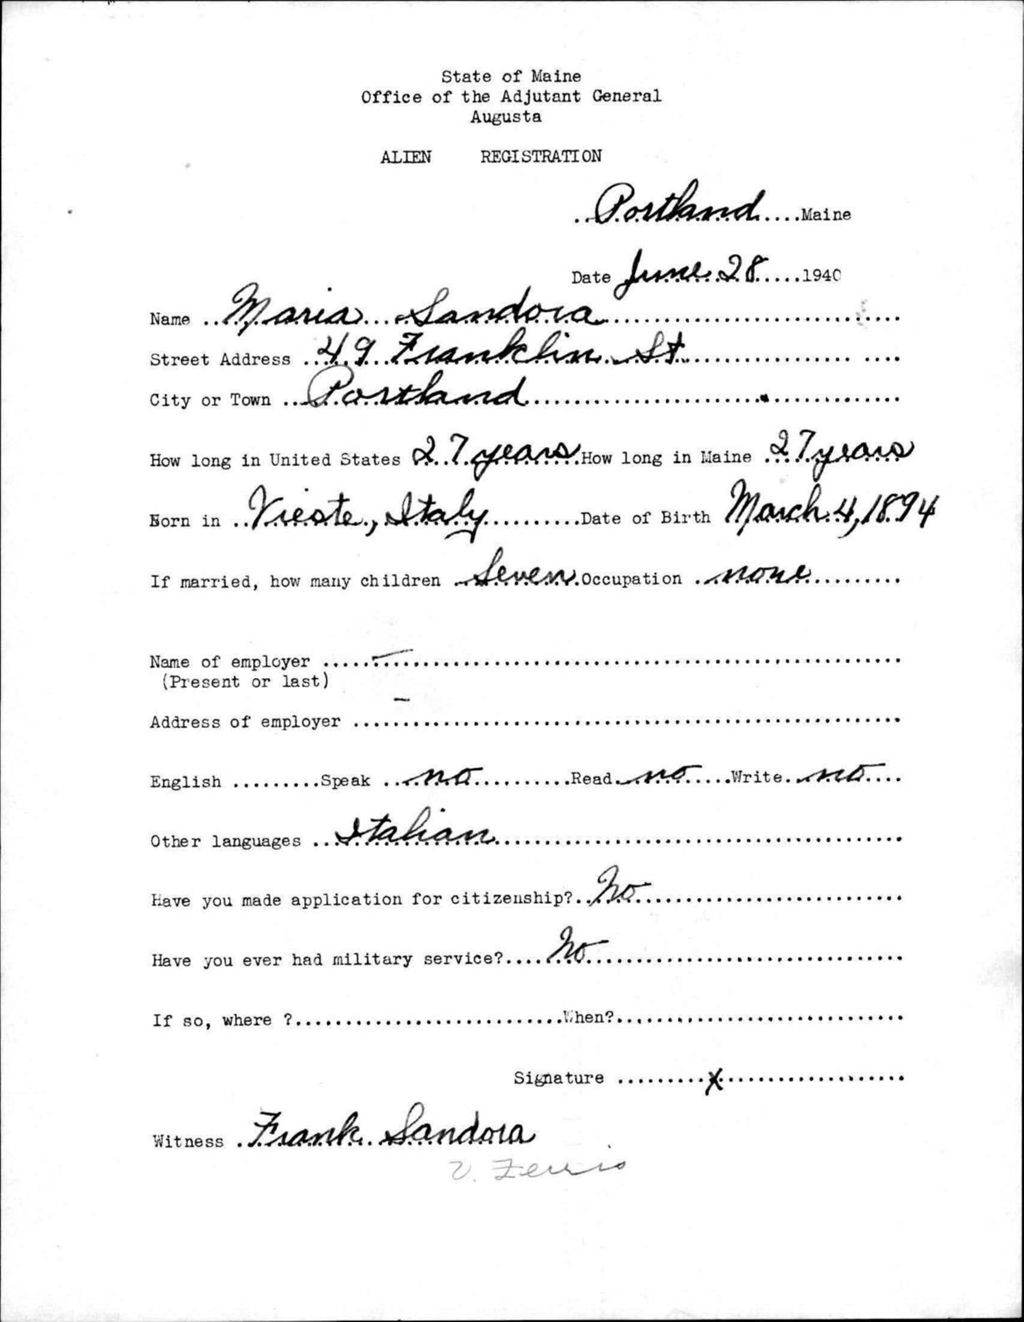 State of Maine
Office of the Adjutant General
Augusta
ALIEN REGISTRATION
..Portland....Maine
Date June 28.....1940
Name ..Maria Sandora
Street Address ..49 Franklin St.
City or Town ..Portland
How long in United States 27 years How long in Maine 27 years
Born in ..Vieste, Italy..........Date of Birth March 4, 1894
If married, how many children ..Seven.Occupation ..none..........
Name of employer ..........
(Present or last) –
Address of employer ..........
English .........Speak ..no..........Read..no.....Write..no....
Other languages ..Italian
Have you made application for citizenship?..No
Have you ever had military service?....No
If so, where ?..........When?..........
Signature .........X..........
Witness .Frank Sandora
V.